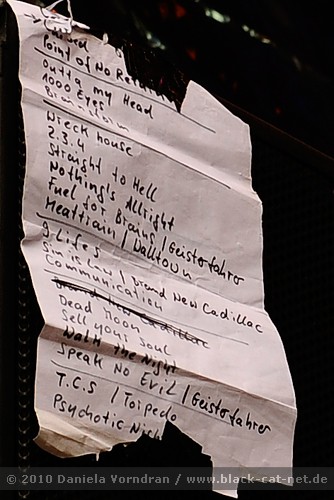 Point of No Return
Outta my Head
1000 Eyes
Brainstorm
Wreck house
2.3.4
Straight to Hell
Nothing's Allright
Fuel for Brains / Geisterfahrer
Meattrain / Dalltown
9 Lifes
Sin is Law / Brand New Cadillac
Communication
Brand New Cadillac
Dead Moon
Sell your Soul
Walk the Night
Speak No Evil / Geisterfahrer
T.C.S / Torpedo
Psychotic
© 2010 Daniela Vorndran / www.black-cat-net.de